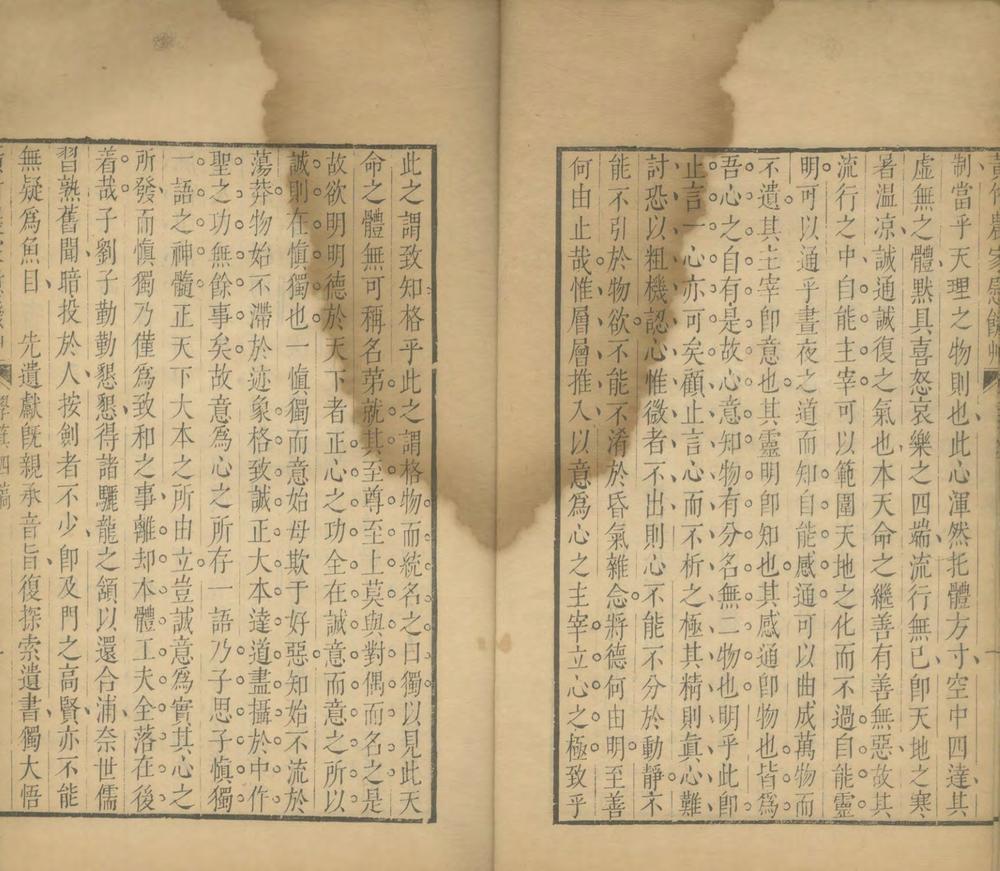 黃竹農家慰餓艸
制當乎天理之物則也此心渾然托體方寸空中四達其
虛無之體黙具喜怒哀樂之四端流行無已卽天地之寒
暑温凉誠通誠復之氣也本天命之繼善有善無惡故其
流行之中自能主宰可以範圍天地之化而不過自能靈
明可以通乎晝夜之道而知自能感通可以曲成萬物而
不遺其主宰卽意也其靈明卽知也其感通卽物也皆爲
吾心之自有是故心意知物有分名無二物也明乎此卽
止言一心亦可矣顧止言心而不析之極其精則眞心難
討恐以粗機認心惟微者不出則心不能不分於動靜不
能不引於物欲不能不淆於昏氣雜念將德何由明至善
何由止哉惟層層推入以意爲心之主宰立心之極致乎
此之謂致知格乎此之謂格物而統名之曰獨以見此天
命之體無可稱名第就其至尊至上莫與對偶而名之是
故欲明明德於天下者正心之功全在誠意而意之所以
誠則在愼獨也一愼獨而意始毋欺于好惡知始不流於
蕩莽物始不滯於迹象格致誠正大本達道盡攝於中作
聖之功無餘事矣故意爲心之所存一語乃子思子愼獨
一語之神髓正天下大本之所由立豈誠意爲實其心之
所發而愼獨乃僅爲致和之事離却本體工夫全落在後
着哉子劉子勤勤懇懇得諸驪龍之頷以還合浦奈世儒
習熟舊聞暗投於人按劍者不少卽及門之高賢亦不能
無疑爲魚目　先遺獻旣親承音旨復探索遺書獨大悟